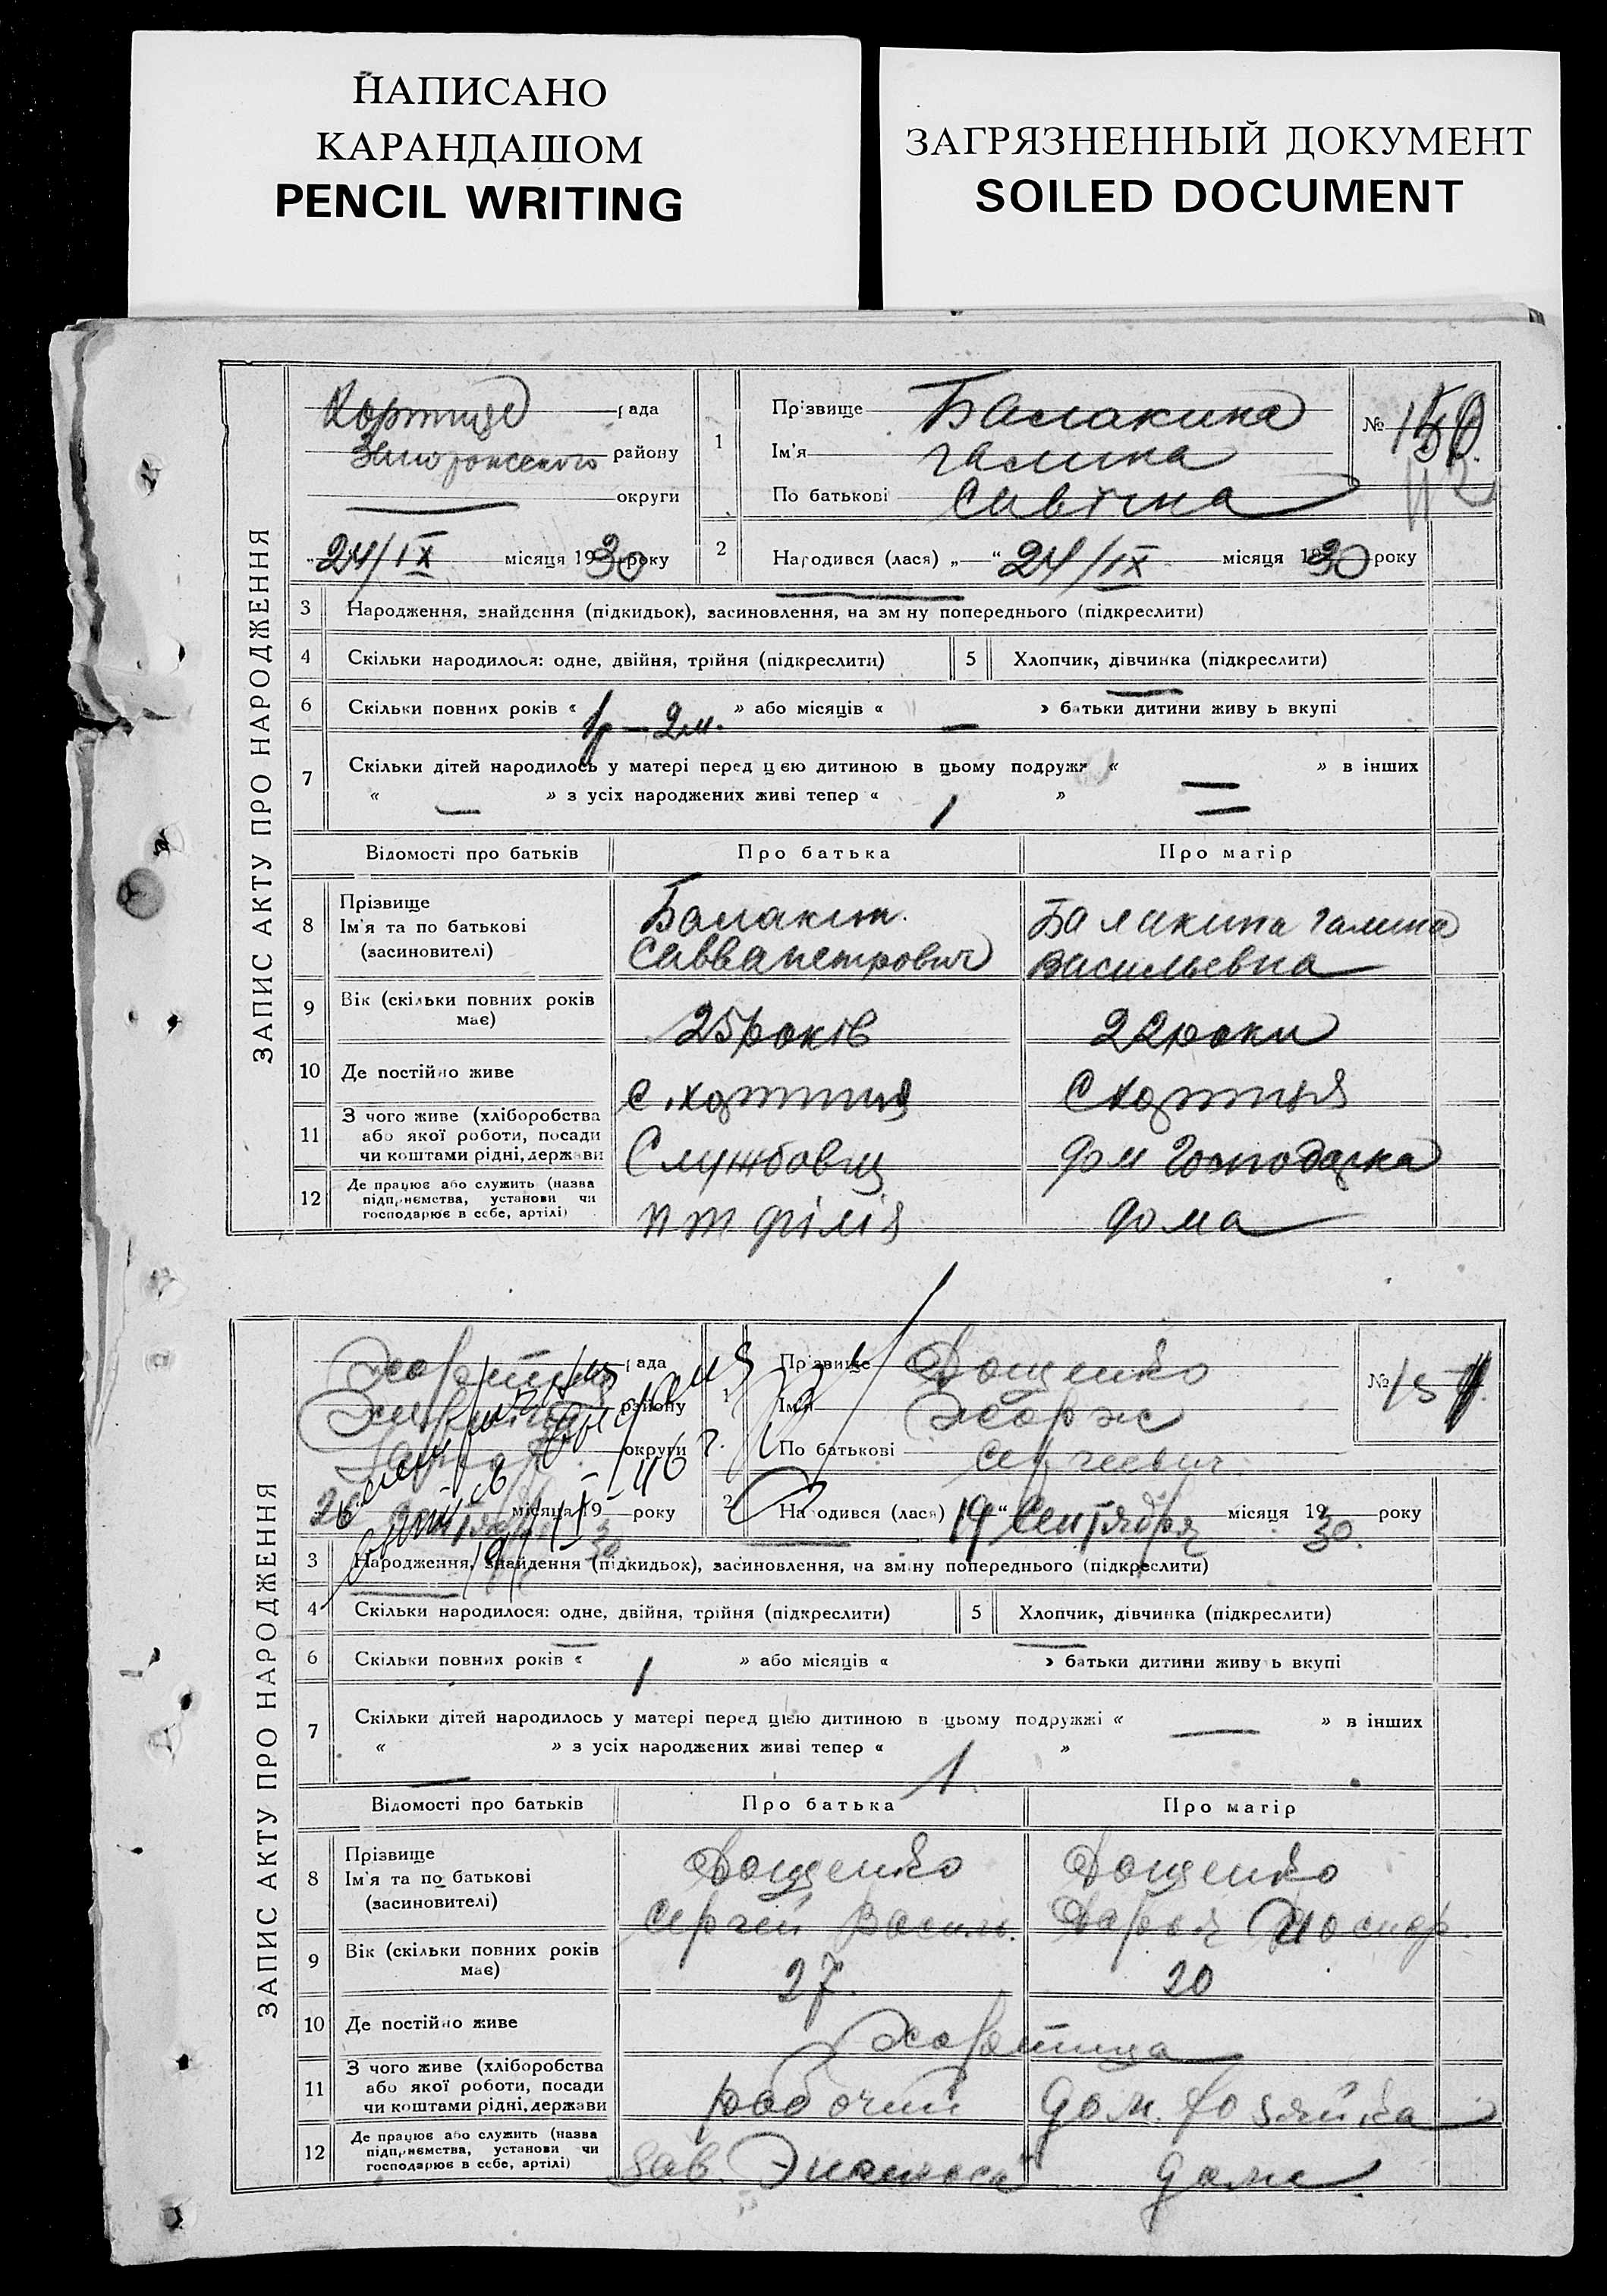 НАПИСАНО
КАРАНДАШОМ
PENCIL WRITING
ЗАГРЯЗНЕННЫЙ ДОКУМЕНТ
SOILED DOCUMENT
ЗАПИС АКТУ ПРО НАРОДЖЕННЯ
Хортиця рада
Запорожского району
округи
24/IX місяця 1930 року
1
Прізвище Балакина
Ім'я Галина
По батькові Савічна
№ 150
112
2 Народився (лася) „ “ 24/IX місяця 1930 року
3 Народження, знайдення (підкидьок), засиновлення, на зміну попереднього (підкреслити)
4 Скільки народилося: одне, двійня, трійня (підкреслити) 5 Хлопчик, дівчинка (підкреслити)
6 Скільки повних років « 1р – 2 м. » або місяців « — » батьки дитини живуть вкупі
7 Скільки дітей народилось у матері перед цією дитиною в цьому подружжі « — » в інших
« — » з усіх народжених живі тепер « 1 »
Відомості про батьків Про батька Про матір
8 Прізвище
Ім'я та по батькові
(засновителі)
Балакин
Савва Петрович
Балакина Галина
Васильевна
9 Вік (скільки повних років
має)
25 років 22 роки
10 Де постійно живе с. Хортиця С Хортиця
11 З чого живе (хліборобства
або якої роботи, посади
чи коштами рідні, держави
Службовець дом Господарка
12 Де працює або служить (назва
підприємства, установи чи
господарює в себе, артілі)
пт філія дома
ЗАПИС АКТУ ПРО НАРОДЖЕННЯ
Хортица рада
району
округи
26 місяця 1930 року
1
Прізвище Дощенко
Ім'я Жорж
По батькові Сергеевич
№ 151
2 Народився (лася) 19 “ Сентября місяця 1930. року
3 Народження, знайдення (підкидьок), засиновлення, на зміну попереднього (підкреслити)
4 Скільки народилося: одне, двійня, трійня (підкреслити) 5 Хлопчик, дівчинка (підкреслити)
6 Скільки повних років « 1 » або місяців « » батьки дитини живуть вкупі
7 Скільки дітей народилось у матері перед цією дитиною в цьому подружжі « — » в інших
« — » з усіх народжених живі тепер « 1 »
Відомості про батьків Про батька Про матір
8 Прізвище
Ім'я та по батькові
(засиновителі)
Дощенко
Сергей Василь.
Дощенко
Дарья Иосиф.
9 Вік (скільки повних років
має)
27. 20
10 Де постійно живе Хортица
11 З чого живе (хліборобства
або якої роботи, посади
чи коштами рідні, держави
рабочий дом. хозяйка
12 Де працює або служить (назва
підприємства, установи чи
господарює в себе, артілі)
Зав. дома.